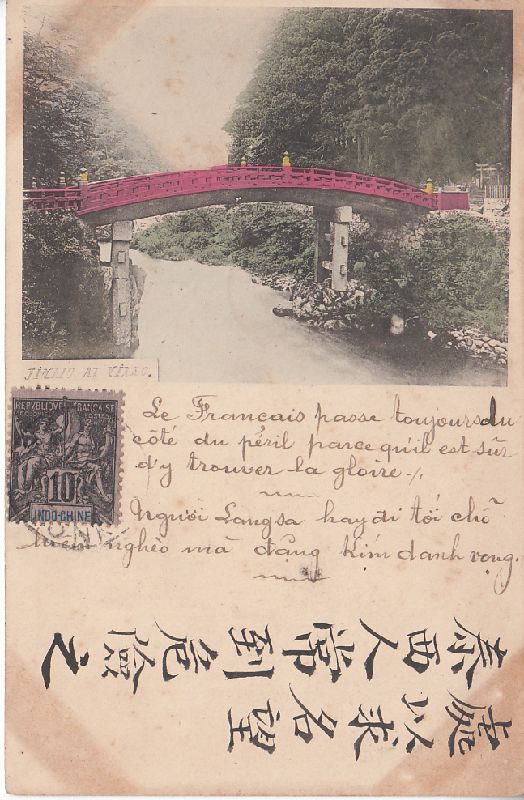 REPUBLIQUE FRANÇAISE
10
INDO-CHINE
Le Français passe toujours du
côté du péril parce qu'il est sûr
d'y trouver la gloire -/.
Người Langsa hay đi tới chỗ
hiểm nghèo mà đặng kím danh vọng.
泰西人常到危險之
處以求名望